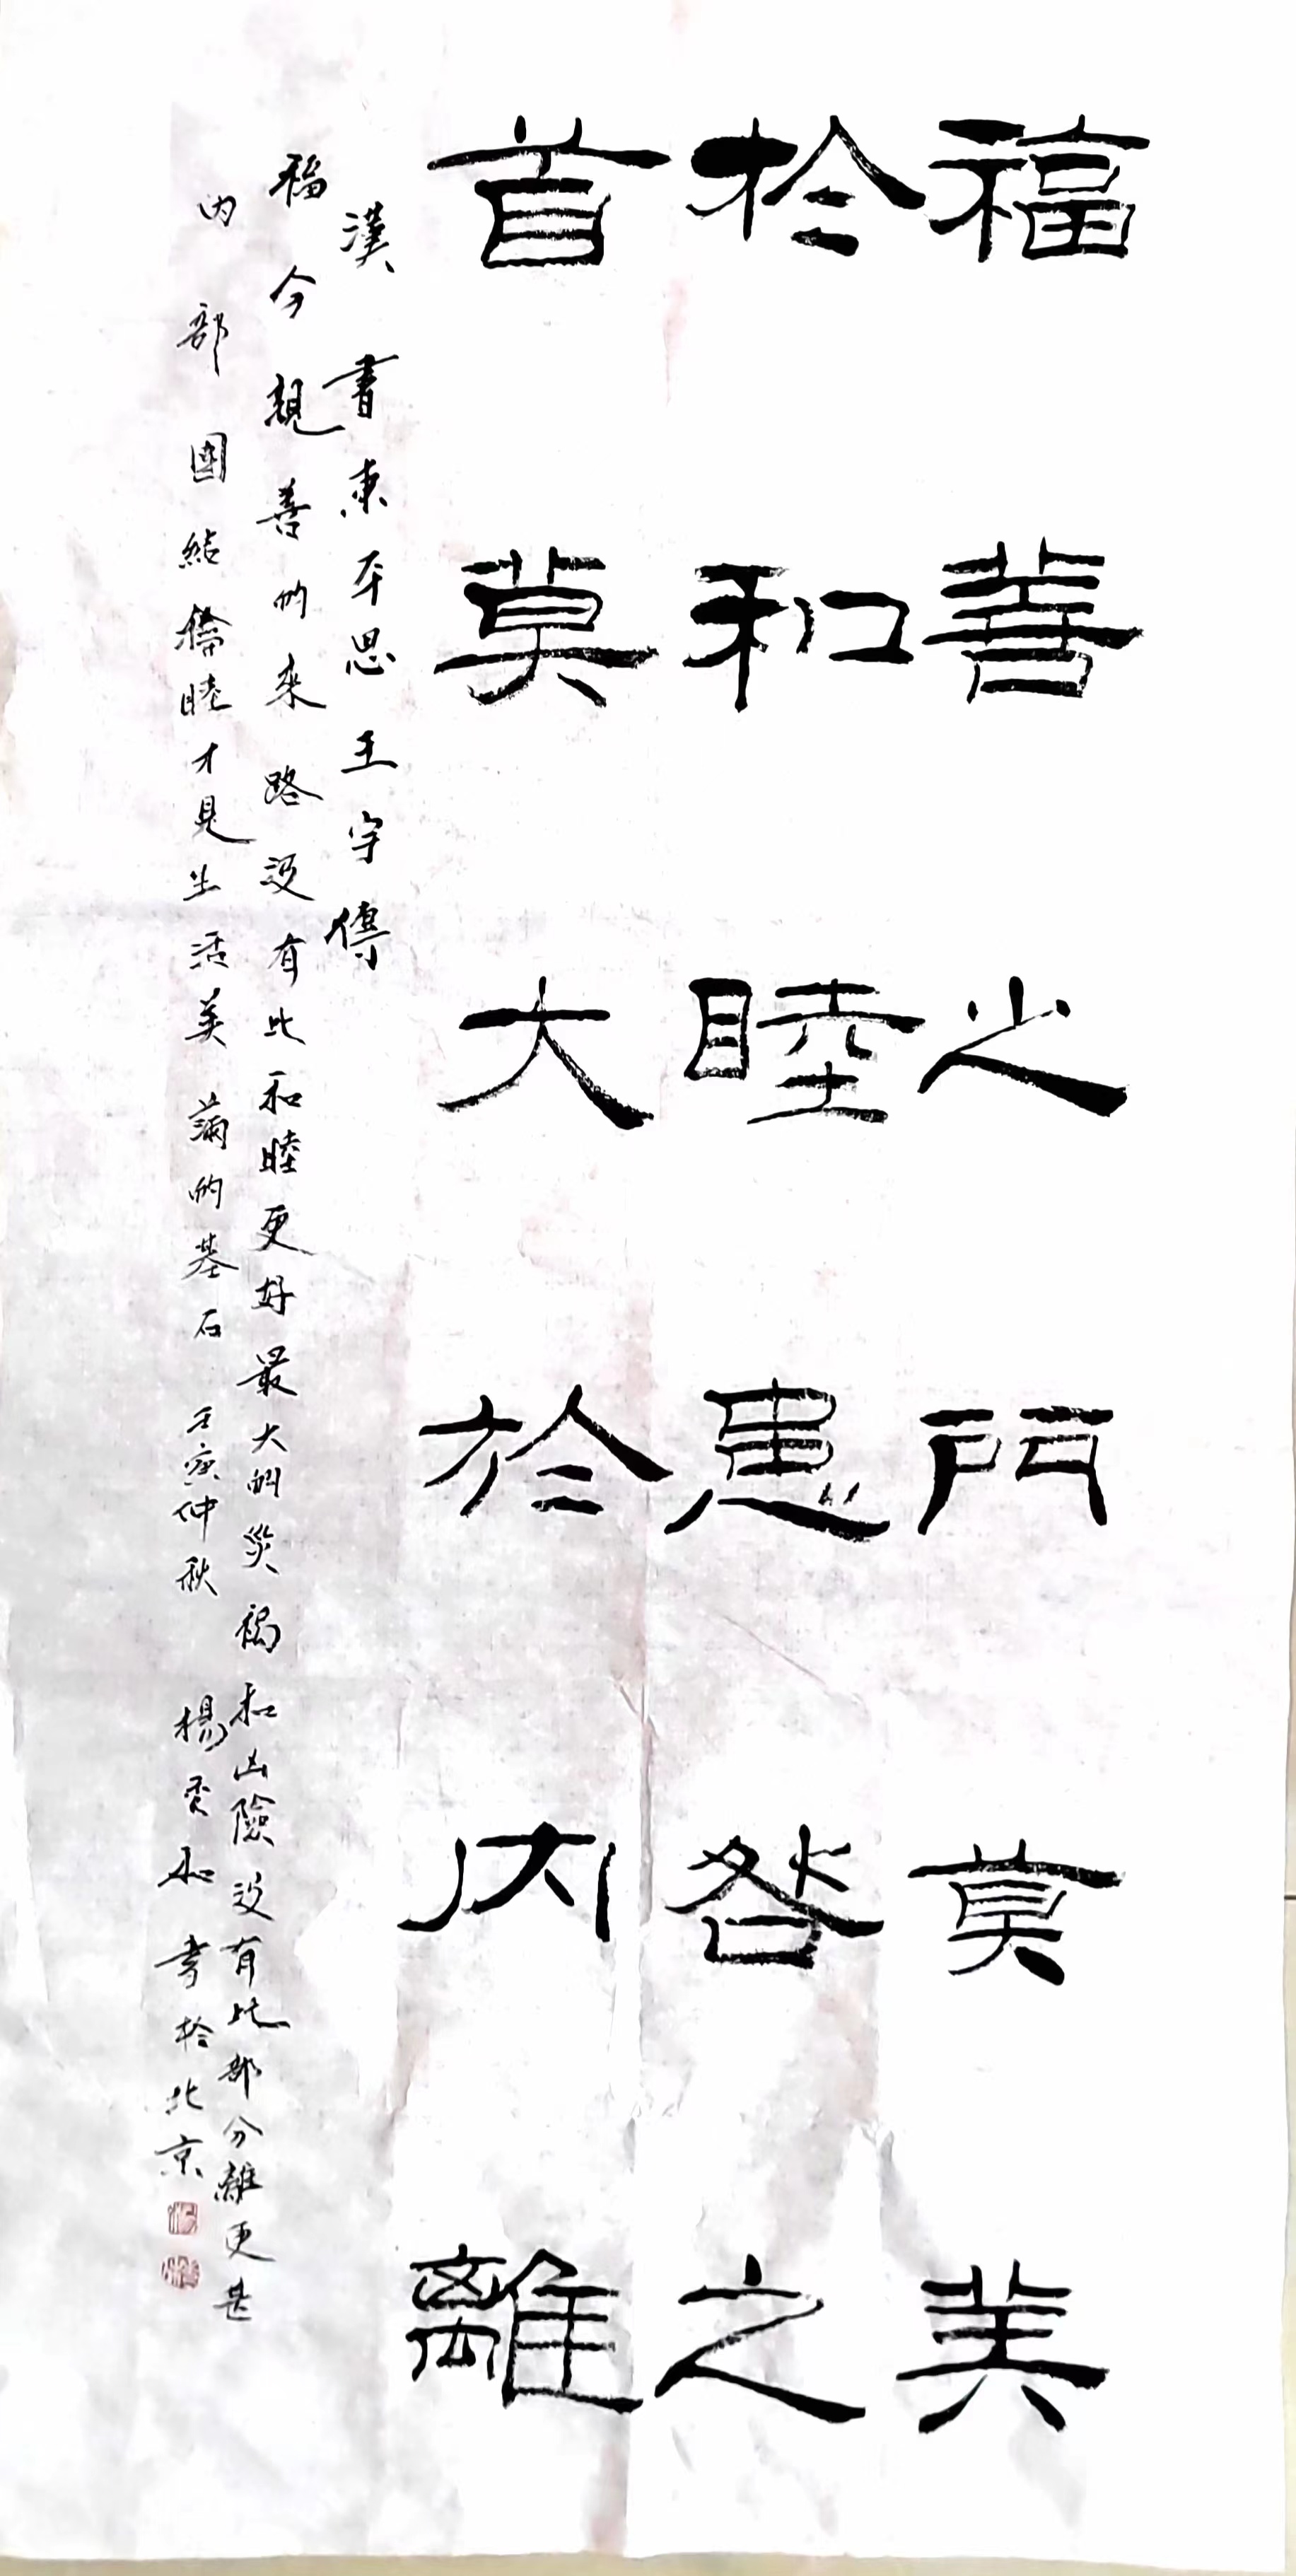 福善之門莫美
於和睦患咎之
首莫大於內離
漢書東平思王宇傳
福今親善的來路没有比和睦更好最大的災禍和凶險没有比部分離更甚
内部團結睦才見生活美滿的基石 壬寅仲秋 楊和書於北京